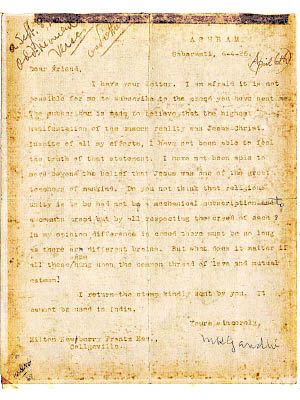 ASHRAM
Sabarmati, 6-4-26.
(April 6th)
Dear friend,
I have your letter. I am afraid it is not
possible for me to subscribe to the creed you have sent me.
The subscriber is made to believe that the highest
manifestation of the unseen reality was Jesus Christ.
In spite of all my efforts, I have not been able to feel
the truth of that statement. I have not been able to
move beyond the belief that Jesus was one of the great
teachers of mankind. Do you not think that religious
unity is to be had not by a mechanical subscription to
a common creed but by all respecting the creed of each?
In my opinion difference in creed there must be so long
as there are different brains. But what does it matter if
all these hung upon the common thread of love and mutual
esteem?
I return the stamp kindly sent by you. It
cannot be used in India.
Yours sincerely,
MKGandhi
Milton Newberry Frantz Esq.,
Collgeville.